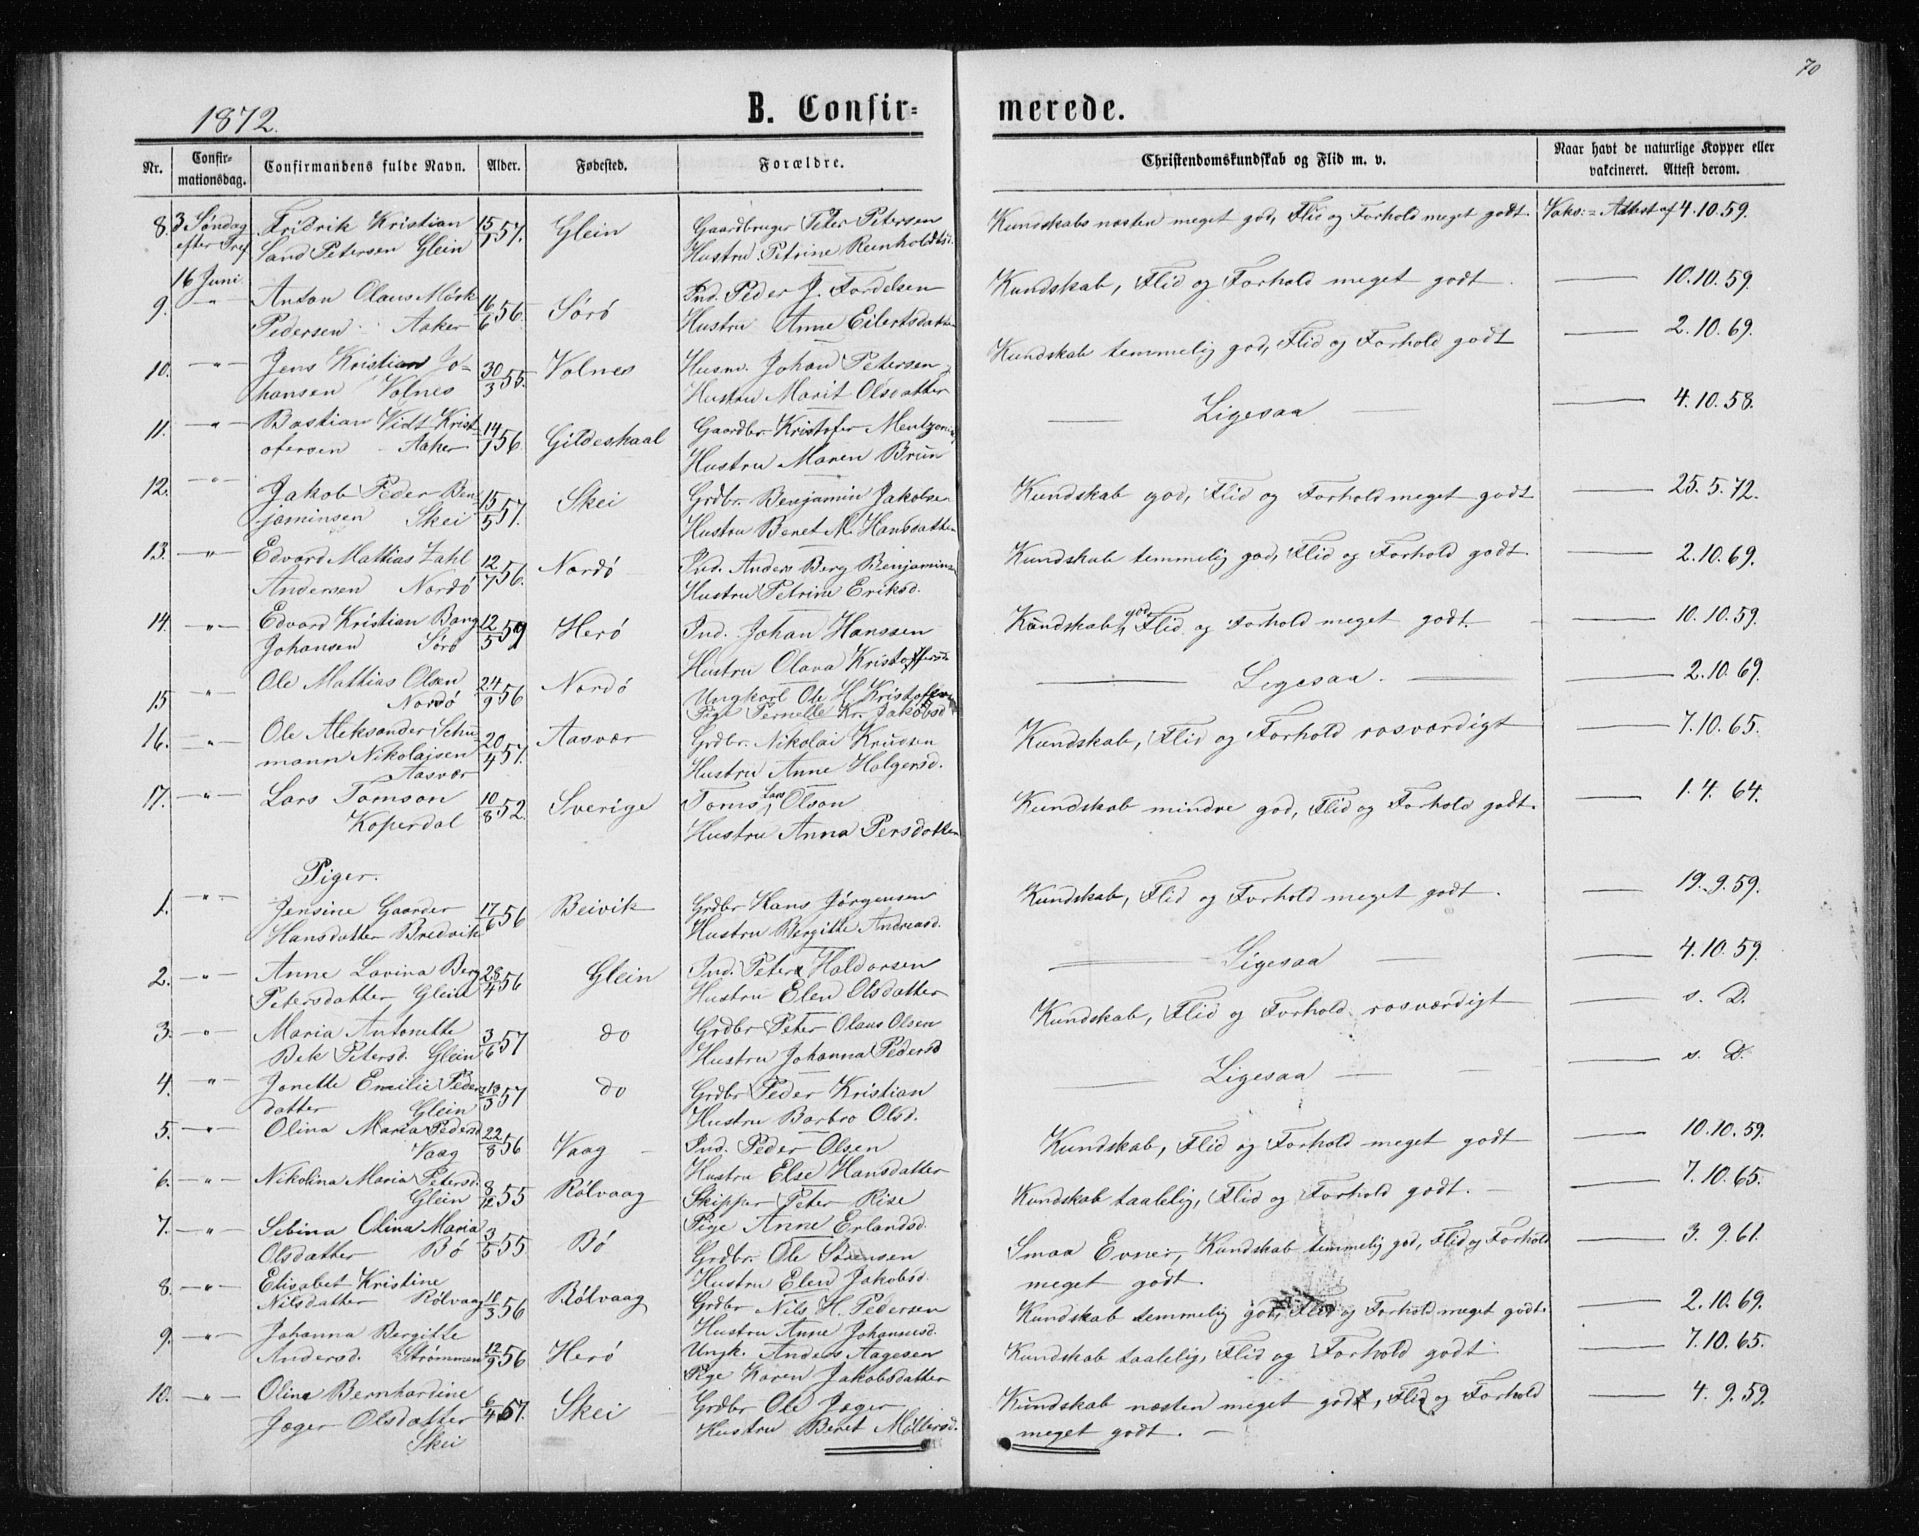 70
1872.
B. Confirmerede.
Nr. Confirmationsdag. Confirmandens fulde Navn. Alder. Fødested. Forældre. Christendomskundskab og Flid m. v. Naar havt de naturlige Kopper eller vakcineret. Attest derom.
8. 3 Søndag Fridrik Kristian 15/5 57. Glein Gaardbruger Peter Petersen Kundskabs næsten meget god, Flid og Forhold meget godt. Vaks: = Attest af 4.10.59.
efter Tref Sand Petersen Glein Hustru Petrine Reinholdtsd.
16 Juni
9. " Anton Olaus Mørk 16/6 56. Sørø Ind. Peder J. Fordelsen Kundskab, Flid og Forhold meget godt. — 10.10.59.
Pedersen Aaker Hustru Anne Eilertsdatter
10. " Jens Kristian Jo- 30/3 55. Volnes Husm. Johan Petersen Kundskab temmelig god, Flid og Forhold godt — 2.10.69.
hansen Volnes Hustru Marit Olsdatter
11. " Bastian Vidt Krist 14/1 56. Gildeskaal Gaardbr. Kristofer Mentzoni — Ligesaa — 4.10.58.
ofersen Aaker Hustru Maren Brun
12. " Jakob Peder Ben- 15/5 57. Skei Grdbr. Benjamin Jakobsen Kundskab god, Flid og Forhold meget godt — 25.5.72.
jaminsen Skei Hustru Beret M. Hansdatter
13. " Edvard Mattias Zahl 12/7 56. Nordø Ind. Anders Berg Benjaminsen Kundskab temmelig god, Flid og Forhold godt. — 2.10.69.
Andersen Nordø Hustru Petrine Eriksd.
14. " Edvard Kristian Bang 12/5 59 Herø Ind. Johan Hanssen Kundskab god, Flid og Forhold meget godt. — 10.10.59.
Johansen Sørø Hustru Olava Kristoffersd
15 " Ole Mathias Olsen 24/9 56 Nordø Ungkarl Ole H Kristofersen — Ligesaa. — 2.10.69.
Nordø Pige Pernelle Kr. Jakobsd
16. " Ole Aleksander Schu 20/4 57. Aasvær Grdbr. Nikolai Knudsen Kundskab, Flid og Forhold rosværdigt — 7.10.65.
mann Nikolaisen Hustru Anne Holgersd.
Aasvær
17. " Lars Tomson 10/8 52. Sverige Toms Lars Olson Kundskab mindre god, Flid og Forhold godt. — 1.4.64.
Koperdal Hustru Anna Persdotter
Piger.
1. " Jensine Gaarder 17/6 56 Beivik Grdbr Hans Jørgensen Kundskab, Flid og Forhold meget godt. — 19.9.59.
Hansdatter Bredvik Hustru Bergitte Andreasd.
2. " Anne Lovina Berg 28/4 56 Glein Ind. Peter Haldorsen — Ligesaa — 4.10.59.
Petersdatter Glein Hustru Elen Olsdatter
3. " Maria Antonette 3/6 57 do Grdbr Peter Olaus Olsen Kundskab, Flid og Forhold rosværdigt — s. D.
Bek Petersd. Glein Hustru Johanna Pedersd
4. " Jonette Emilie Peders 13/3 57 do Grdbr Peder Kristian — Ligesaa — s. D.
datter Glein Hustru Barbro Olsd.
5. " Olina Maria Pedersd 22/8 56 Vaag Ind. Peder Olsen Kundskab, Flid og Forhold meget godt — 10.10.59.
Vaag Hustru Else Hansdatter
6. " Nikolina Maria Petersd. 8/12 55 Rølvaag Skipper Peter Rise Kundskab taalelig, Flid og Forhold godt. — 7.10.65.
Glein Pige Anne Erlandsd.
7. " Sebina Olina Maria 3/5 55 Bø Grdbr. Ole Sørensen Smaa Evner, Kundskab temmelig god, Flid og Forhold — 3.9.61.
Olsdatter Bø Hustru Elen Jakobsd. meget godt.
8. " Elisabet Kristine 10/3 56 Rølvaag Grdbr Nils H. Pedersen Kundskab temmelig god, Flid og Forhold meget godt. — 2.10.69.
Nilsdatter Rølvaag Hustru Anne Johannesd.
9. " Johanna Bergitte 12/9 56 Herø Ungk. Anders Aagesen Kundskab taalelig, Flid og Forhold godt. — 7.10.65.
Andersd. Strømmen Pige Karen Jakobsdatter
10. " Olina Bernhardine 6/4 57. Skei Grdbr Ole Jæger Kundskab næsten meget godt, Flid og Forhold — 4.9.59.
Jæger Olsdatter Hustru Beret Møllersd. meget godt. —
Skei